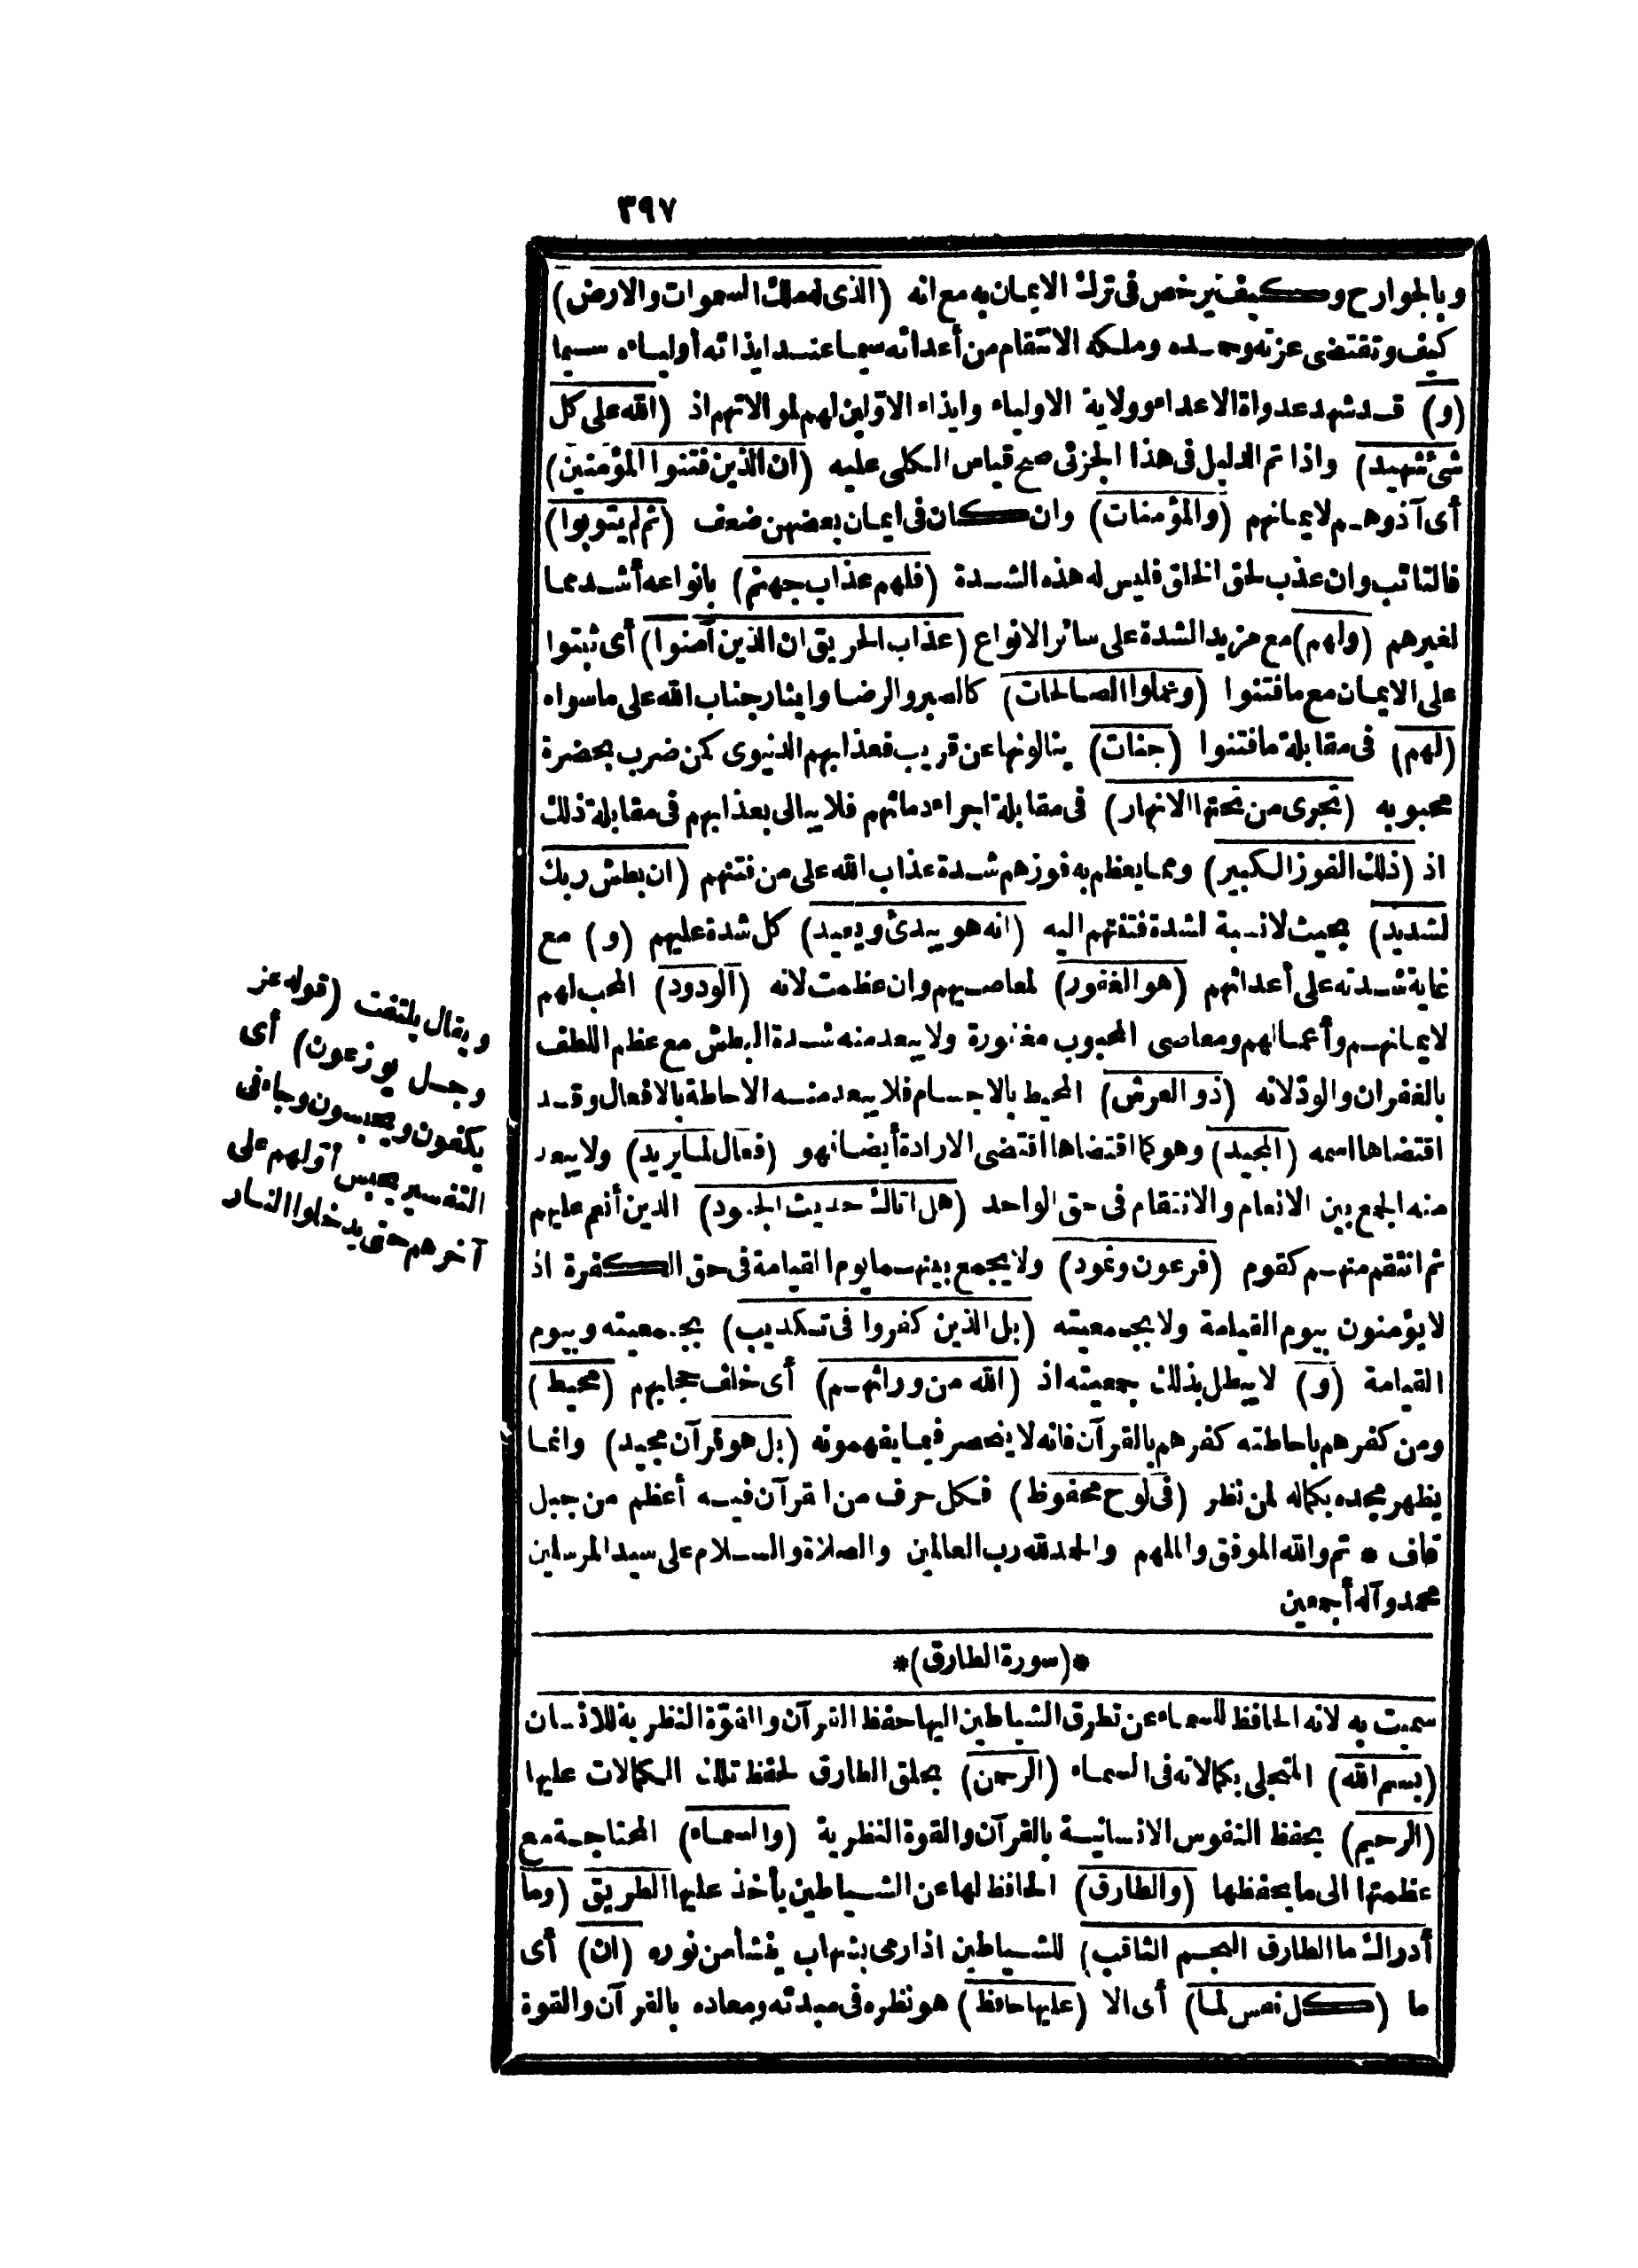 ٣٩٧
وبالجوارح وكيف يرخص فى ترك الايمان به مع انه (الذى له ملك السموات والارض)
كيف وتقتضى عزته وحمده وملكه الانتقام من أعدائه سيما عند ايذائه أولياءه سيما
(و) قد شهد عداوة الاعداء وولاية الاولياء وايذاء الاوّلين لهم لموالاتهم اذ (الله على كل
شئ شهيد) واذا تم الدليل فى هذا الجزئى صح قياس الكلى عليه (ان الذين فتنوا المؤمنين)
أى آذوهم لايمانهم (والمؤمنات) وان كان فى ايمان بعضهن ضعف (ثم لم يتوبوا)
فالتائب وان عذب لحق الخلق فليس له هذه الشدة (فلهم عذاب جهنم) بانواعه أشد مما
لغيرهم (ولهم) مع مزيد الشدة على سائر الانواع (عذاب الحريق ان الذين آمنوا) أى ثبتوا
على الايمان مع ما فتنوا (وعملوا الصالحات) كالصبر والرضا وايثار جناب الله على ما سواه
(لهم) فى مقابلة ما فتنوا (جنات) ينالونها عن قريب فعذابهم الدنيوى كمن ضرب بحضرة
محبوبه (تجرى من تحتها الانهار) فى مقابلة اجراء دمائهم فلا يبالى بعذابهم فى مقابلة ذلك
اذ (ذلك الفوز الكبير) ومما يعظم به فوزهم شدة عذاب الله على من فتنهم (ان بطش ربك
لشديد) بحيث لا نسبة لشدة فتنتهم اليه (انه هو يبدئ ويعيد) كل شدة عليهم (و) مع
غاية شدته على أعدائهم (هو الغفور) لمعاصيهم وان عظمت لانه (الودود) المحب لهم
لايمانهم وأعمالهم ومعاصى المحبوب مغفورة ولا يبعد منه شدة البطش مع عظم اللطف
بالغفران والودّ لانه (ذو العرش) المحيط بالاجسام فلا يبعد منه الاحاطة بالافعال وقد
اقتضاها اسمه (المجيد) وهو كما اقتضاها اقتضى الارادة أيضا فهو (فعال لما يريد) ولا يبعد
منه الجمع بين الانعام والانتقام فى حق الواحد (هل اتاك حديث الجنود) الذين أنعم عليهم
ثم انتقم منهم كقوم (فرعون وثمود) ولا يجمع بينهما يوم القيامة فى حق الكفرة اذ
لا يؤمنون بيوم القيامة ولا بجمعيته (بل الذين كفروا فى تكذيب) بجمعيته وبيوم
القيامة (و) لا يبطل بذلك جمعيته اذ (الله من ورائهم) أى خلف حجابهم (محيط)
ومن كفرهم باحاطته كفرهم بالقرآن فانه لا ينحصر فيما يفهمونه (بل هو قرآن مجيد) وانما
يظهر مجده بكماله لمن نظر (فى لوح محفوظ) فكل حرف من القرآن فيه أعظم من جبل
قاف * تم والله الموفق والملهم والحمد لله رب العالمين والصلاة والسلام على سيد المرسلين
محمد وآله أجمعين
*(سورة الطارق)*
سميت به لانه الحافظ للسماء عن تطرق الشياطين اليها حفظ القرآن والقوّة النظرية للانسان
(بسم الله) المتجلى بكمالاته فى السماء (الرحمن) بخلق الطارق لحفظ تلك الكمالات عليها
(الرحيم) بحفظ النفوس الانسانية بالقرآن والقوة النظرية (والسماء) المحتاجة مع
عظمتها الى ما يحفظها (والطارق) الحافظ لها عن الشياطين يأخذ عليها الطريق (وما
أدراك ما الطارق النجم الثاقب) للشياطين اذا رمى بشهاب ينشأ من نوره (ان) أى
ما (كل نفس لما) أى الا (عليها حافظ) هو نظره فى مبدئه ومعاده بالقرآن والقوة
ويقال يلتفت (قوله عز
وجل يوزعون) أى
يكفون ويحبسون وجاء فى
التفسير يحبس أوّلهم على
آخرهم حتى يدخلوا النار